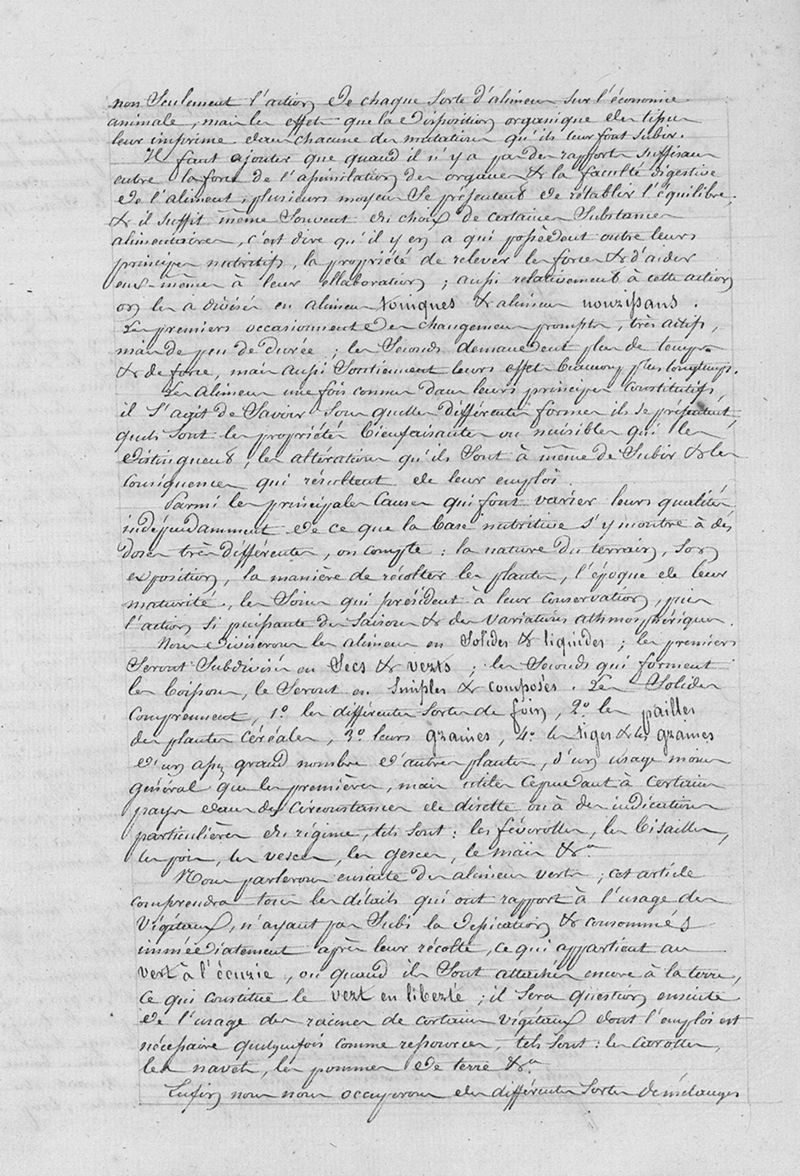 non seulement l'action de chaque sorte d'alimens sur l'économie
animale, mais les effets que la disposition organique des tissus
leur imprime dans chacune des mutations qu'ils leur font subir.
Il faut ajouter que quand il n'y a pas des rapports suffisans
entre la force de l'assimilation des organes & la faculté digestive
de l'aliment, plusieurs moyens se présentent de rétablir l'équilibre
& il suffit même souvent du choix de certaines substances
alimentaires, c'est dire qu'il y en a qui possèdent outre leurs
principes nutritifs, la propriété de relever les forces & d'aider
eux-mêmes à leur ellaboration; aussi relativement à cette action
on les a divisés en alimens toniques & alimens nourissans.
Les premiers occasionnent des changemens prompts, très actifs,
mais de peu de durée; les seconds demandent plus de temps
& de force, mais aussi soutiennent leurs effets beaucoup plus longtemps.
Les alimens une fois connus dans leurs principes constitutifs,
il s'agit de savoir sous quelles différentes formes ils se présentent,
quels sont les propriétés bienfaisantes ou nuisibles qui les
distinguent, les altérations qu'ils sont à même de subir & les
conséquences qui résultent de leur emploi.
Parmi les principales causes qui font varier leurs qualités
indépendamment de ce que la base nutritive s'y montre à des
doses très différentes, on compte: la nature du terrain, son
exposition, la manière de récolter les plantes, l'époque de leur
maturité, les soins qui président à leur conservation, puis
l'action si puissante des saisons & des variations athmosphériques.
Nous diviserons les alimens en solides & liquides; les premiers
seront subdivisés en secs & verts; les seconds qui forment
les boissons, le seront en simples & composés. Les solides
comprennent, 1º les différentes sortes de foin, 2º les pailles
des plantes céréales, 3º leurs graines, 4º les tiges & les graines
d'un assez grand nombre d'autres plantes, d'un usage moins
général que les premières, mais utiles cependant à certains
pays dans des circonstances de disette ou à des indications
particulières du régime, tels sont: les févorolles, les bisailles,
les pois, les vesces, les gesces, le maïs &ª
Nous parlerons ensuite des alimens verts; cet article
comprendra tous les détails qui ont rapport à l'usage des
végétaux, n'ayant pas subi la dessication & consommés
immédiatement après leur récolte, ce qui appartient au
vert à l'écurie, ou quand ils sont attachés encore à la terre,
ce qui constitue le vert en liberté; il sera question ensuite
de l'usage des racines de certains végétaux dont l'emploi est
nécessaire quelquefois comme ressources, tels sont: les carottes,
les navets, les pommes de terre &ª
Enfin nous nous occuperons des différentes sortes de mélanges